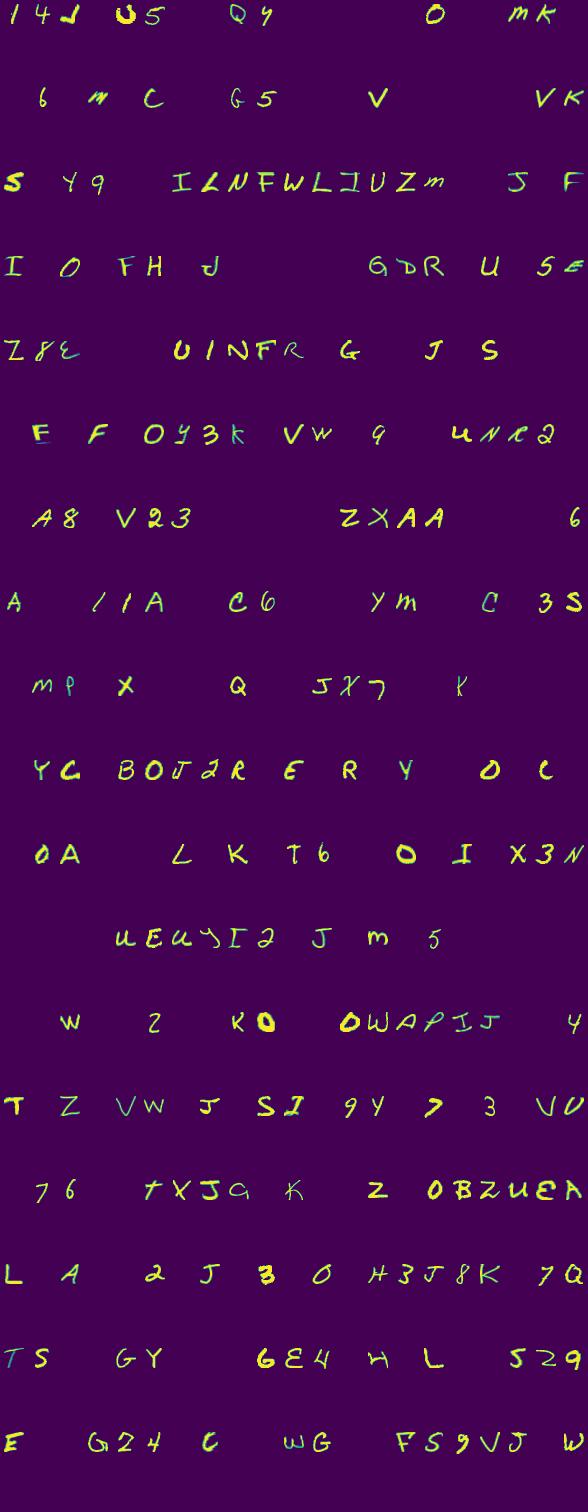 14J U5 QY O MK
6 M C G5 V VK
S Y9 ILNFWLIUZM J F
I O FH J GDR U SE
Z8E U1NFR G J S
F F OY3K VW 9 UNR2
A8 V23 ZXAA 6
A 11A C6 YM C 3S
MP X Q JX7 K
YC BOJ2R E R Y O C
0A L K T6 O I X3N
UEUYI2 J M 5
W 2 KO OWAPIJ 4
T Z VW J SI 9Y 7 3 VU
76 TXJG K Z OBZUEA
L A 2 J 3 O H3J8K 7Q
TS GY GE4 H L 529
E GZ4 C WG FS9VJ W